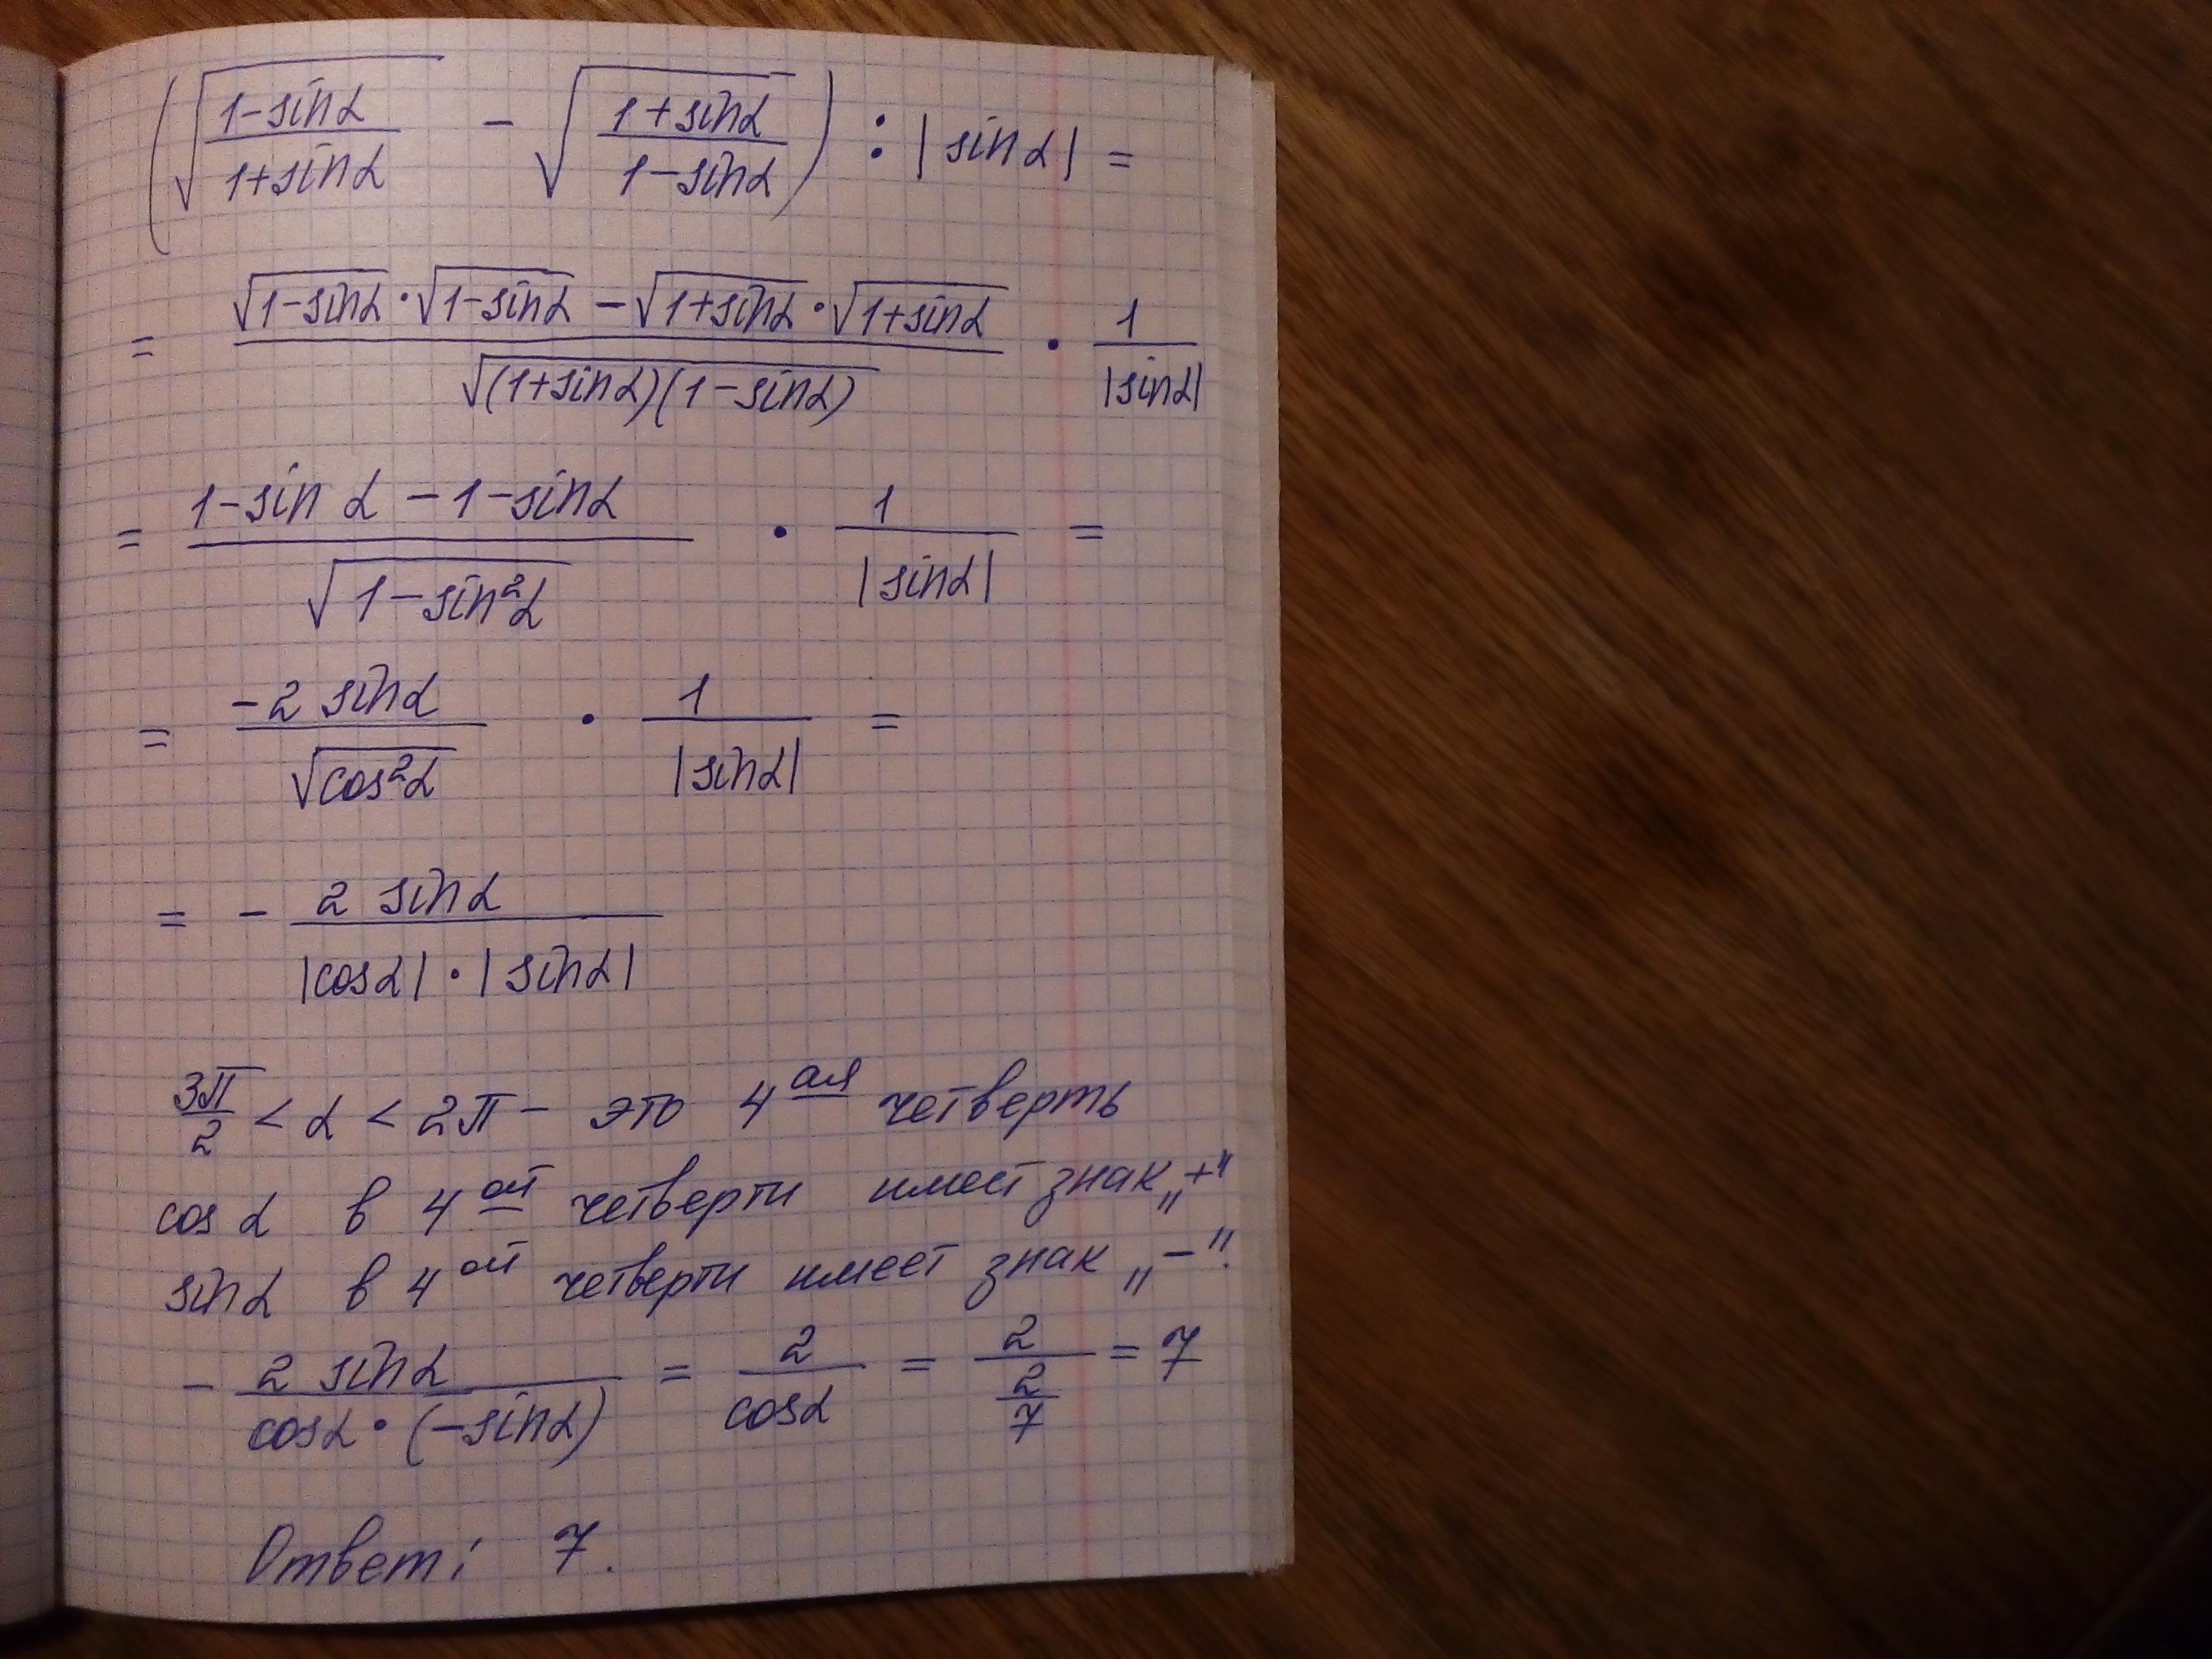 (√((1-sinα)/(1+sinα)) - √((1+sinα)/(1-sinα))) : |sinα| =
= (√(1-sinα) · √(1-sinα) - √(1+sinα) · √(1+sinα))/√((1+sinα)(1-sinα)) · 1/|sinα|
= (1-sin α - 1-sinα)/√(1-sin²α) · 1/|sinα| =
= (-2 sinα)/√(cos²α) · 1/|sinα| =
= - (2 sinα)/(|cosα| · |sinα|)
3π/2 < α < 2π - это 4ая четверть
cos α в 4ой четверти имеет знак „+"
sinα в 4ой четверти имеет знак „-".
- (2 sinα)/(cosα · (-sinα)) = 2/cosα = 2/(2/7) = 7
Ответ: 7.